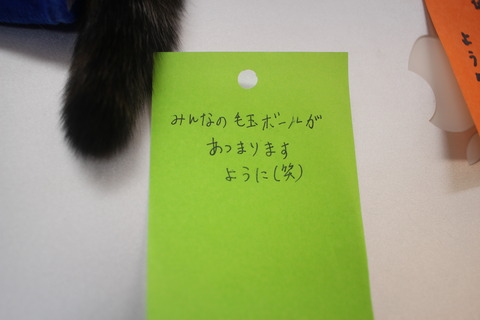 みんなの毛玉ボールが
あつまります
ように(笑)
よう